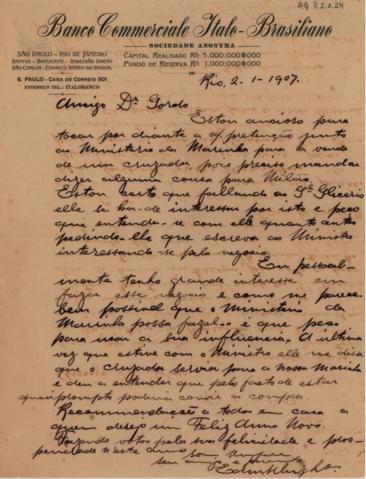 AG 3.2.1.24
Banco Commerciale Italo-Brasiliano
SOCIEDADE ANONYMA
SÃO PAULO - RIO DE JANEIRO
SANTOS - BOTUCATU - RIBEIRÃO PRETO
SÃO CARLOS - ESPIRITO SANTO DO PINHAL
CAPITAL REALISADO RS. 5.000:000$000
FUNDO DE RESERVA RS. 1.000:000$000
S. PAULO - CAIXA DO CORREIO 501
ENDEREÇO TEL.: ITALOBANCO
Rio, 2-1-1907.
Amigo Dr.
Estou ancioso para
tocar por diante a pretenção junto
ao Ministerio da Marinha para a venda
de um cruzador, pois preciso mandar
dizer alguma cousa para Milão.
Estou certo que fallando ao Gal Glicerio
elle se ha-de interessar por isto e peço
que entenda-se com elle quanto antes
pedindo-lhe que escreva ao Ministro
interessando-se pelo negocio.
Eu pessoal-
mente tenho grande interesse em
fazer esse negocio e como me parece
bem possivel que o Ministerio da
Marinha possa fazel-o é que peço
para usar a sua influencia. A ultima
vez que estive com o Ministro elle me disse
que o cruzador servia para a nossa Marinha
e deu a entender que pelo facto de estar
quasi prompto poderia convir a compra.
Recommendações a todos em casa a
quem desejo um Feliz Anno Novo.
Fazendo votos pela sua felicidade e pros-
peridade n'este anno sou sempre
seu